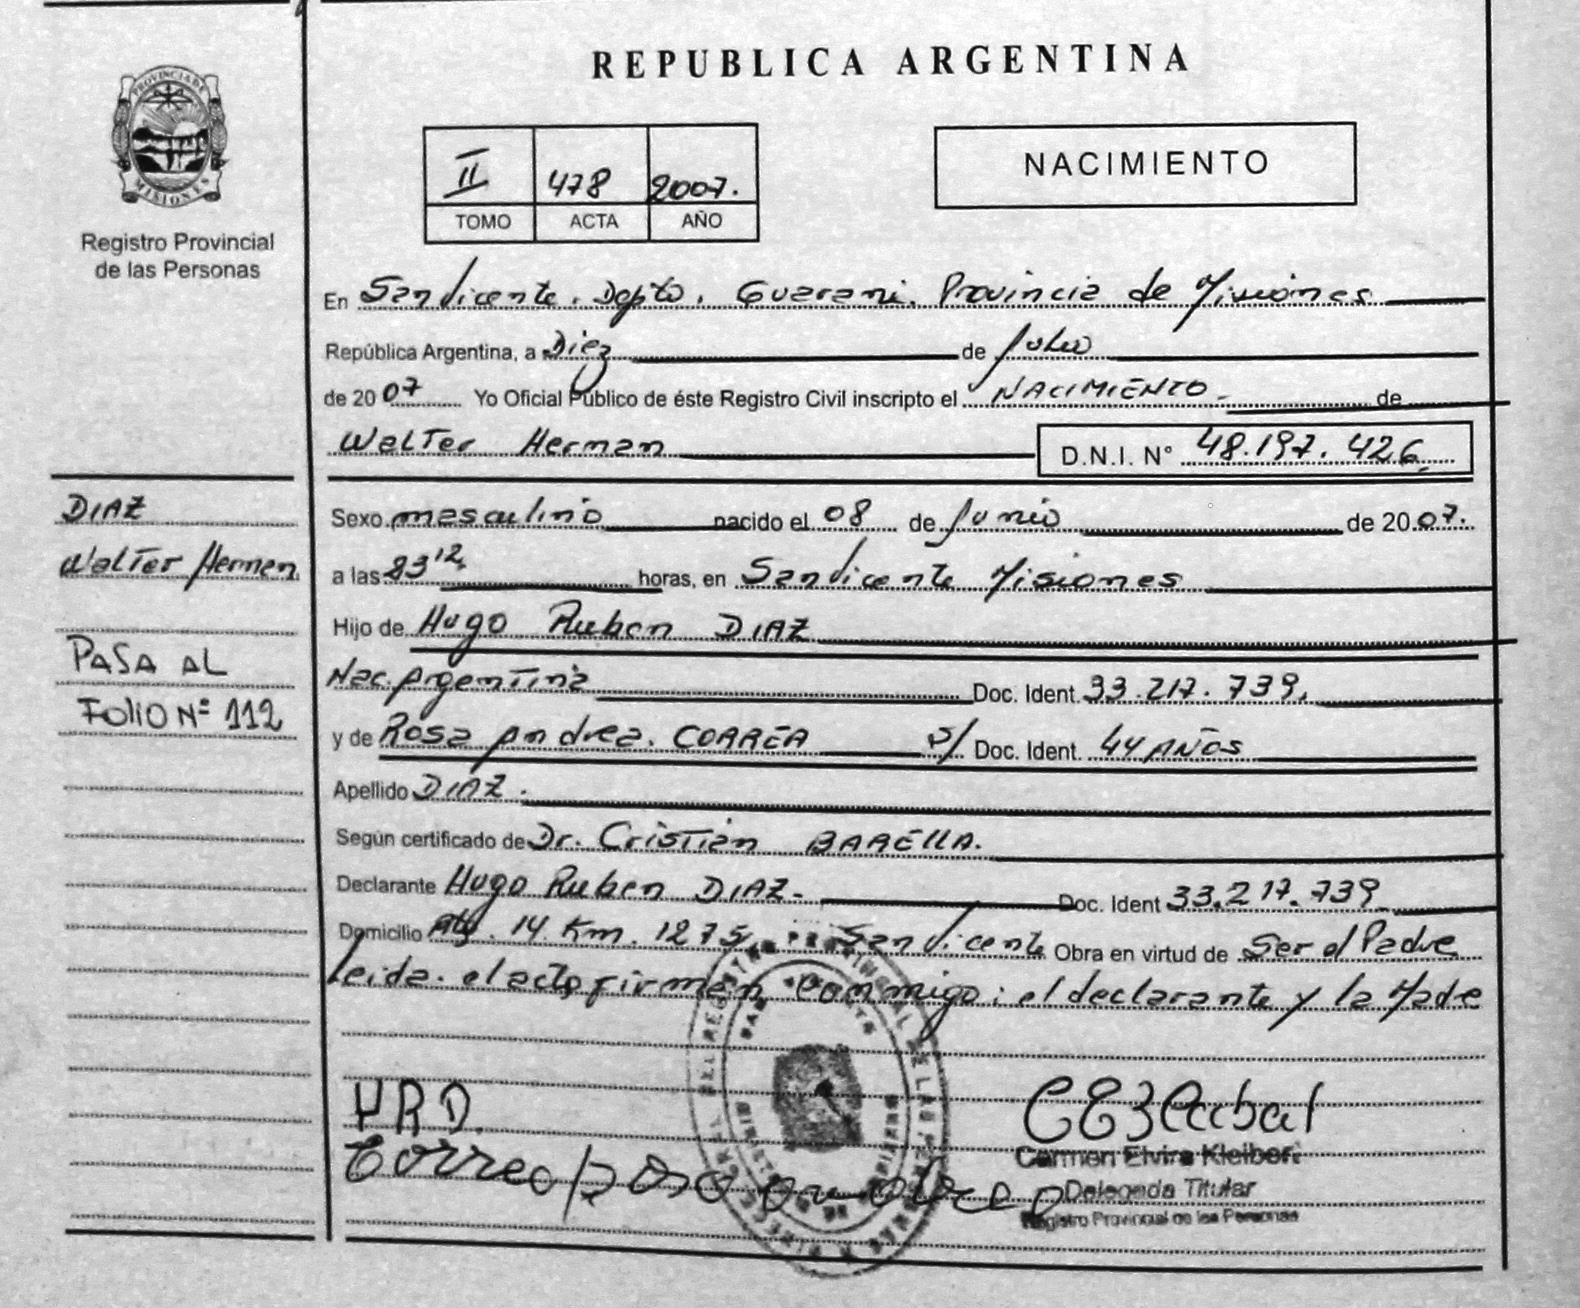 REPUBLICA ARGENTINA
PROVINCIA DE
MISIONES
Registro Provincial
de las Personas
II 478 2007.
TOMO ACTA AÑO
NACIMIENTO
En San Vicente. Depto. Guarani. Provincia de Misiones
República Argentina, a Diez de Julio
de 2007 Yo Oficial Público de éste Registro Civil inscripto el NACIMIENTO de
Walter Hernan D.N.I. N° 48.197.426
DIAZ
Walter Hernan
PASA AL
FOLIO Nº 112
Sexo masculino nacido el 08 de Junio de 2007.
a las 23 12 horas, en San Vicente Misiones
Hijo de Hugo Ruben DIAZ
Nac. Argentina Doc. Ident. 33.217.739.
y de Rosa Andrea. CORREA S/ Doc. Ident. 44 AÑOS
Apellido DIAZ.
Según certificado de Dr. Cristian BARELLA.
Declarante Hugo Ruben DIAZ- Doc. Ident 33.217.739
Domicilio 14 Km. 1275 San Vicente Obra en virtud de Ser el Padre
Leida. el acta firman conmigo: el declarante y la Madre
H.R.D.
Correa
Carmen Elvira Kleibert
Delegada Titular
Registro Provincial de las Personas